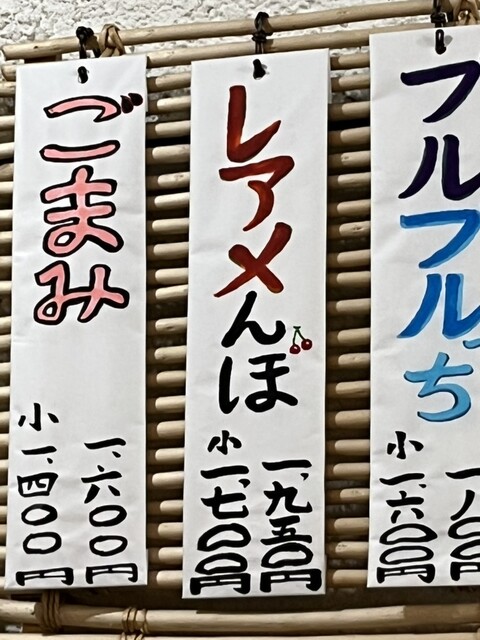 フルフルっち
小 一、六〇〇円
レアメんぼ
一、九五〇円
小 一、七〇〇円
ごまみ
一、六〇〇円
小 一、四〇〇円